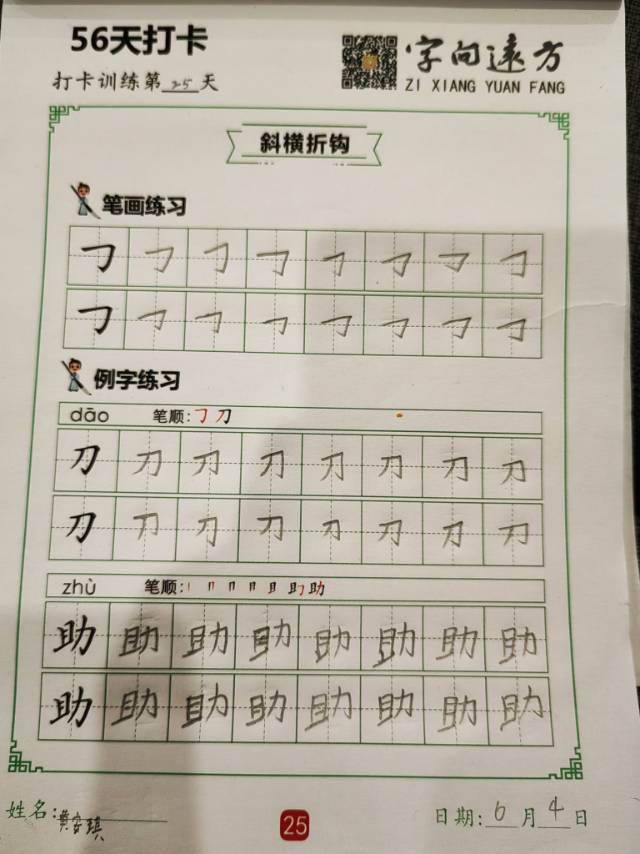 56天打卡
字向远方
打卡训练第25天
ZI XIANG YUAN FANG
斜横折钩
笔画练习
㇆ ㇆ ㇆ ㇆ ㇆ ㇆ ㇆ ㇆
㇆ ㇆ ㇆ ㇆ ㇆ ㇆ ㇆ ㇆
例字练习
dāo 笔顺:㇆刀
刀 刀 刀 刀 刀 刀 刀 刀
刀 刀 刀 刀 刀 刀 刀 刀
zhù 笔顺:丨 冂 月 且 助
助 助 助 助 助 助 助 助
助 助 助 助 助 助 助 助
姓名:黄安琪
25
日期:6月4日